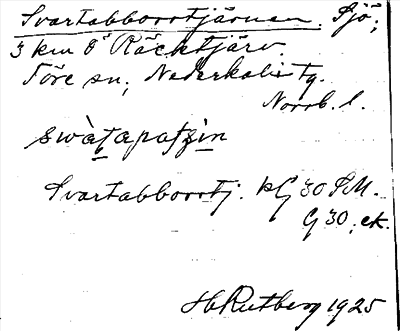 Svartabborrtjärnen. Sjö;
3 km ö Räcktjärv.
Töre sn; Nederkalix tg.
Norrb. l.
swàtapatşin
Svartabborrtj. kG 30 SM.
G 30; ek.
HRutberg 1925